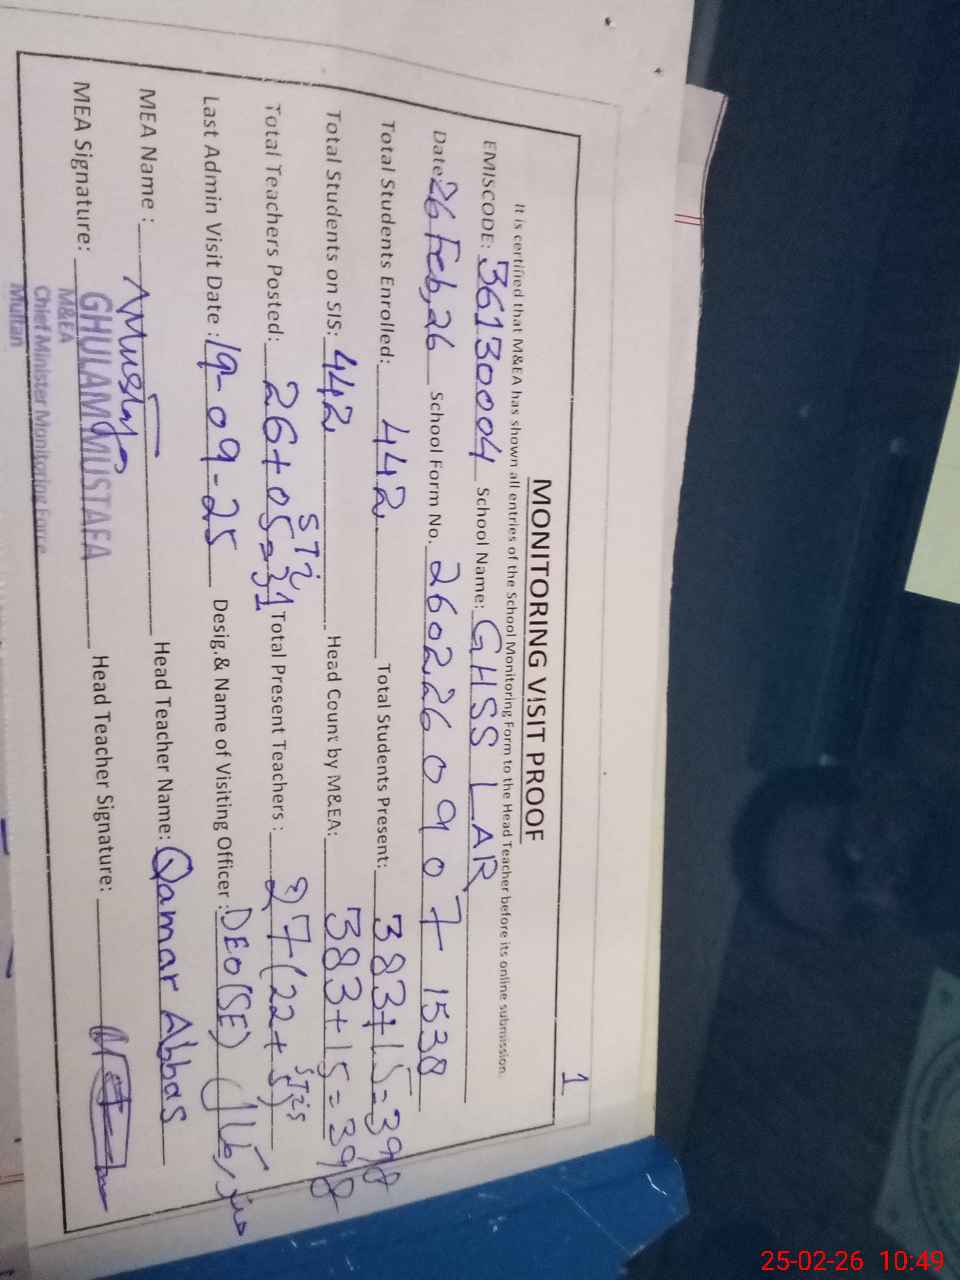 1
MONITORING VISIT PROOF
It is certified that M&EA has shown all entries of the School Monitoring Form to the Head Teacher before its online submission.
EMISCODE: 36130004 School Name: GHSS LAR
Date: 26 Feb, 26 School Form No. 260226 0907 1538
Total Students Enrolled: 442 Total Students Present: 383+15=398
Total Students on SIS: 442 Head Count by M&EA: 383+15=398
Total Teachers Posted: 26+05 STI=31 Total Present Teachers: 27(22+5 STIs)
Last Admin Visit Date: 19-09-25 Desig.& Name of Visiting Officer: DEO(SE)
MEA Name: Head Teacher Name: Qamar Abbas
MEA Signature: Head Teacher Signature:
GHULAM MUSTAFA
M&EA
Chief Minister Monitoring Force
Multan
25-02-26 10:49